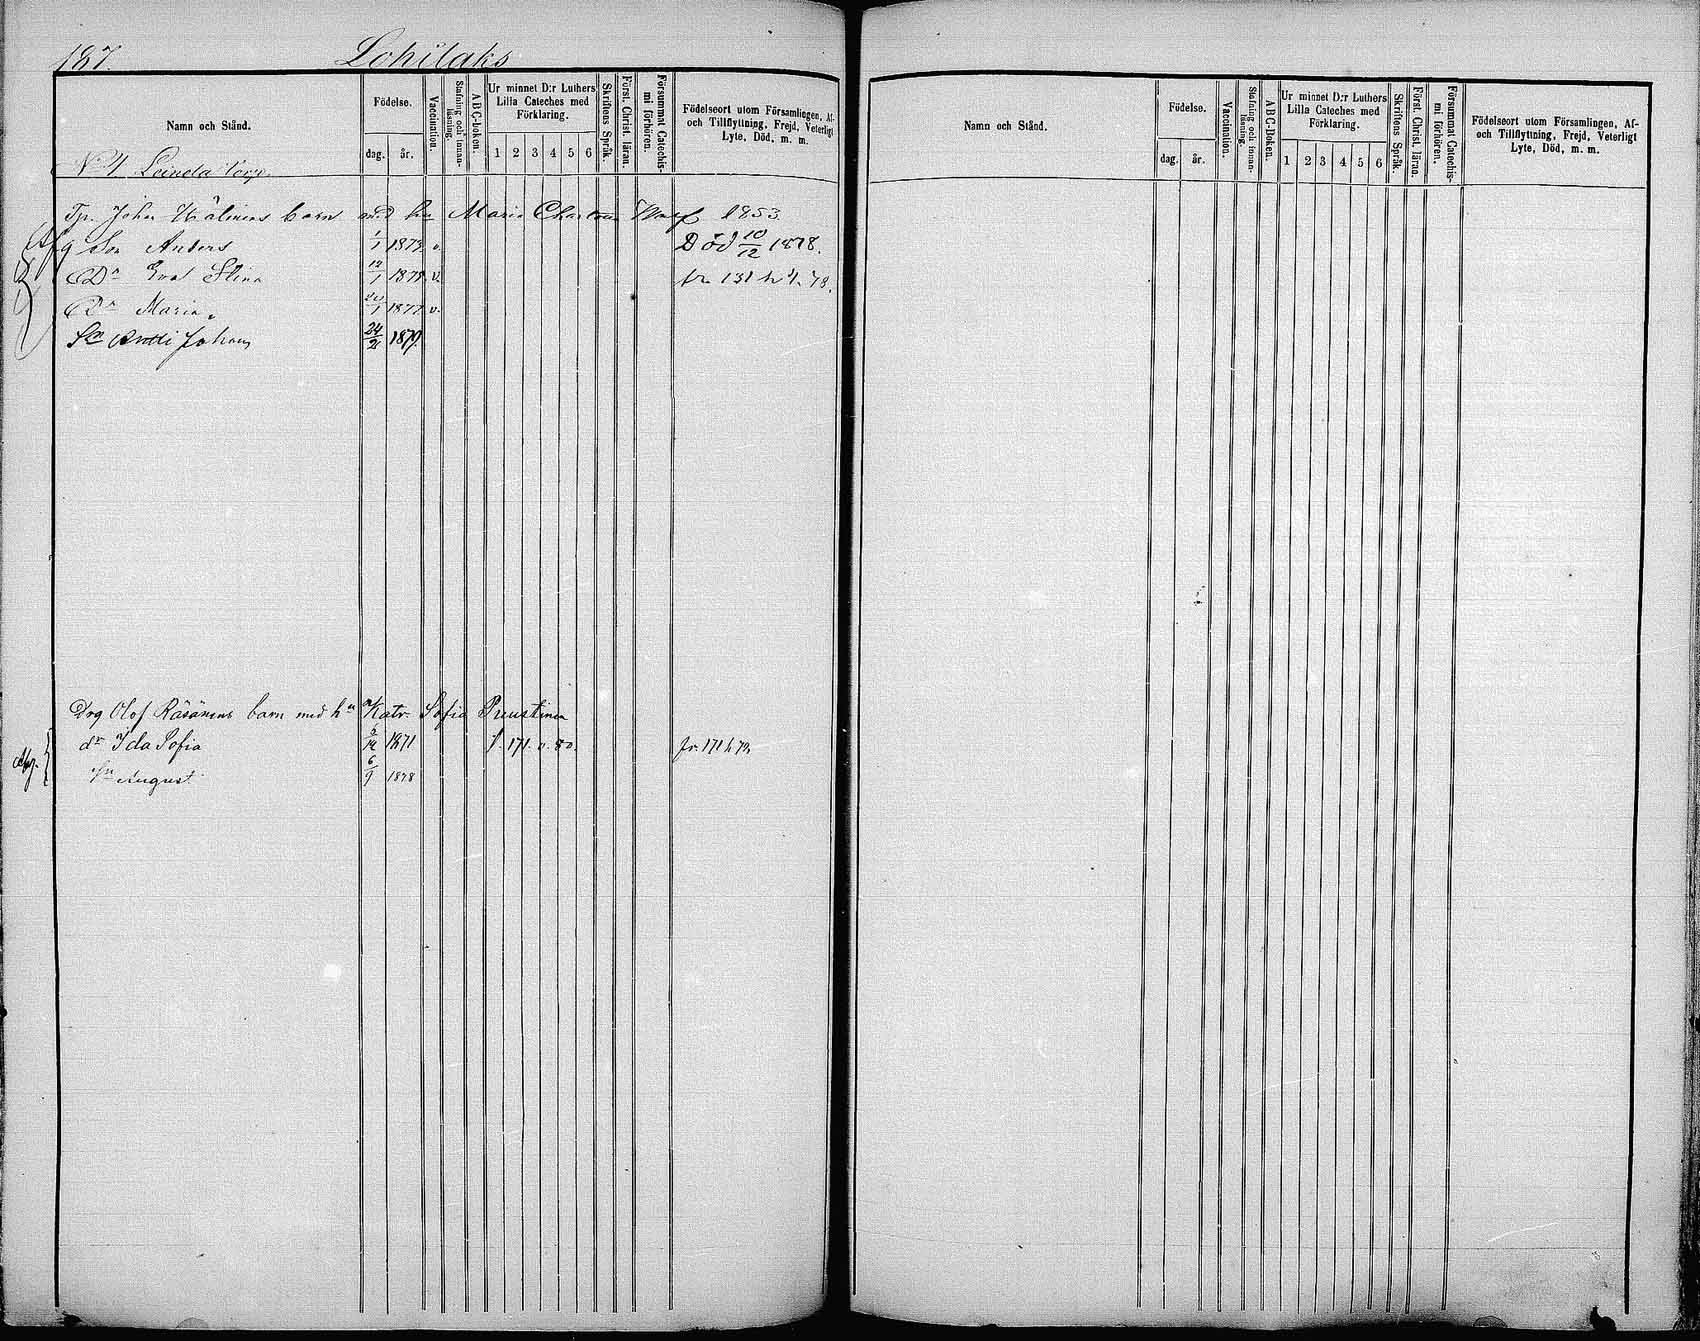 187. Lohilaks
Namn och Stånd.
Födelse.
dag. år.
Vaccination.
Stafning och innan-läsning.
ABC-boken.
Ur minnet D:r Luthers Lilla Cateches med Förklaring.
1 2 3 4 5 6
Skriftens Språk.
Först. Christ. läran.
Försummat Catechis-mi förhören.
Födelseort utom Församlingen, Af-
och Tillflyttning, Frejd, Veterligt
Lyte, Död, m. m.
N:o 4 Torp.
Johan barn med hu Maria 1853.
Son Anders 1/1 1873 v. Död 10/12 1878.
Dr Eva Stina 12/1 1875. v. fr. 131 h 4. 78.
Dr Maria 1877. v.
Sn Antti Johan 24/2 1879.
Drg Olof Räsänens barn med hu Katr. Sofia Puustinen
dr Ida Sofia 1871 f. 171. v. 80. fr. 171 h 73
sn August 6/9 1878
Namn och Stånd.
Födelse.
dag. år.
Vaccination.
Stafning och innan-läsning.
ABC-Boken.
Ur minnet D:r Luthers Lilla Cateches med Förklaring.
1 2 3 4 5 6
Skriftens Språk.
Först. Christ. läran.
Försummat Catechis-mi förhören.
Födelseort utom Församlingen, Af-
och Tillflyttning, Frejd, Veterligt
Lyte, Död, m. m.